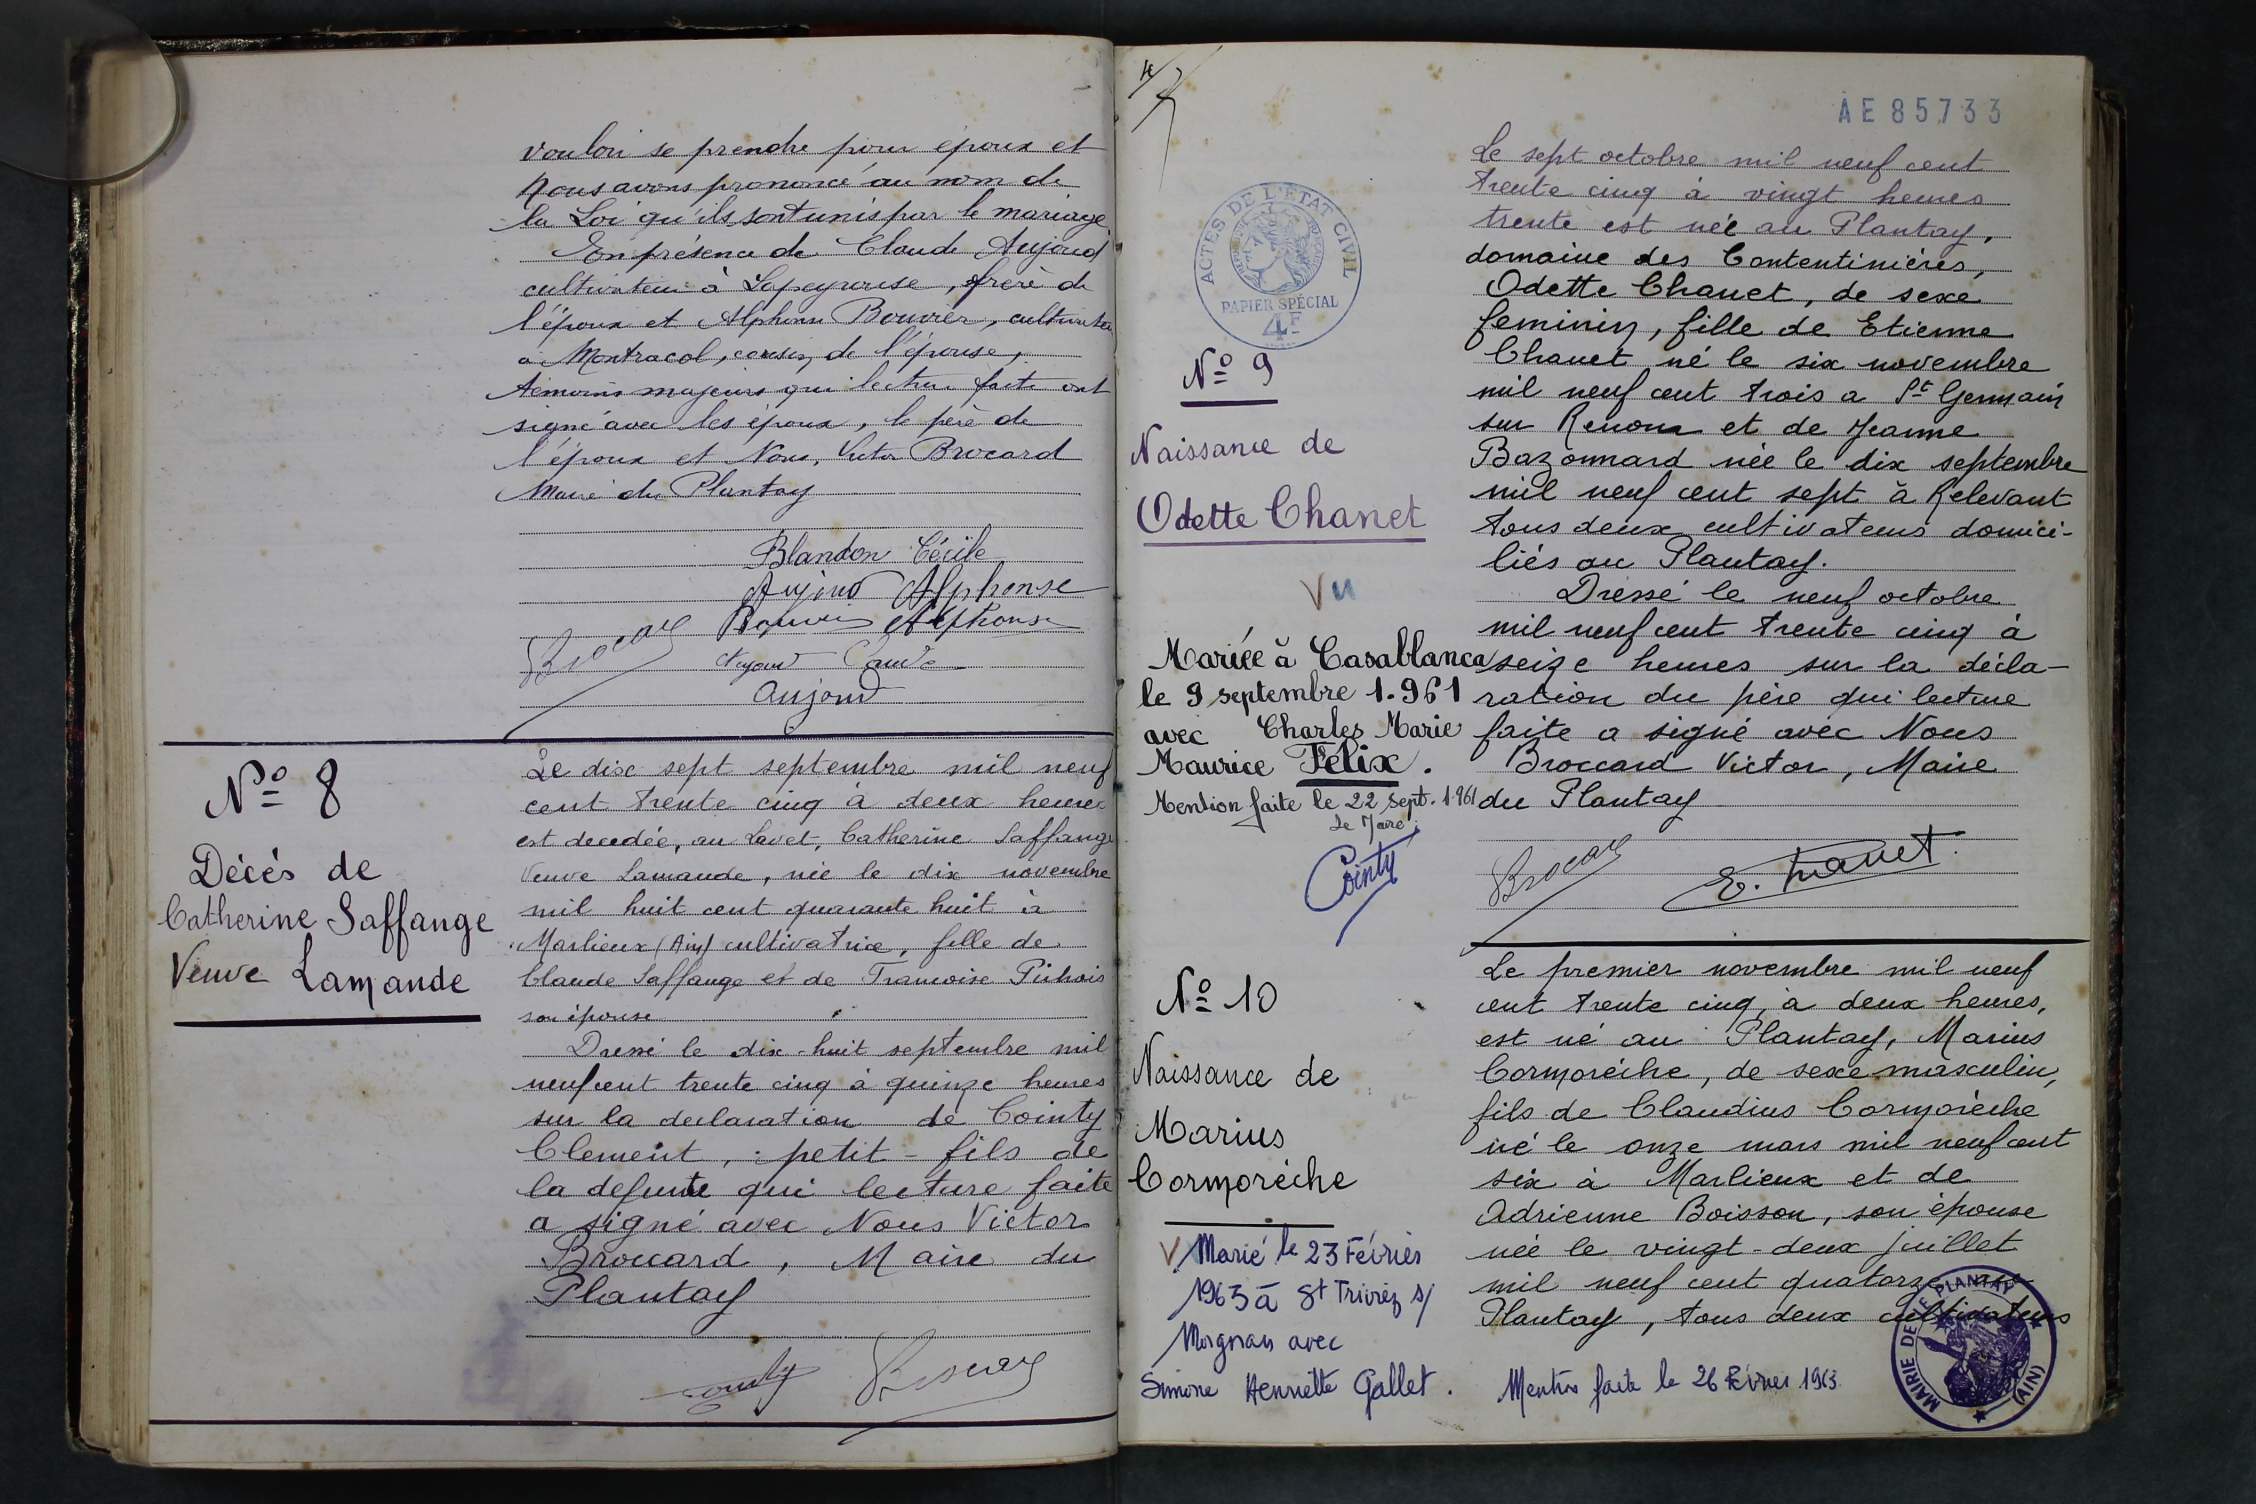 vouloir se prendre pour époux et
Nous avons prononcé au nom de
la Loi qu'ils sont unis par le mariage
En présence de Claude Aujoud
cultivateur à Lapeyrouse, frère de
l'époux et Alphonse Bouvier, cultivateur
à Montracol, cousin de l'épouse,
témoins majeurs qui lecture faite ont
signé avec les époux, le père de
l'époux et Nous, Victor Brocard
Maire du Plantay
Blandon Cécile
Aujoud Alphonse
Brocard Bouvier Alphonse
Aujoud Claude
Aujoud
No 8
Décès de
Catherine Saffange
Veuve Lamande
Le dix sept septembre mil neuf
cent trente cinq à deux heures
est decedée, au Lavet, Catherine Saffange
Veuve Lamande, née le dix novembre
mil huit cent quarante huit à
Marlieux (Ain) cultivatrice, fille de
Claude Saffange et de Francoise
son épouse
Dressé le dix-huit septembre mil
neuf cent trente cinq à quinze heures
sur la declaration de Cointy
Clement, petit-fils de
la defunte qui lecture faite
a signé avec Nous Victor
Broccard, Maire du
Plantay
Cointy Brocard
4
AE 85733
ACTES DE L'ÉTAT CIVIL
PAPIER SPÉCIAL
4F
No 9
Naissance de
Odette Chanet
Vu
Mariée à Casablanca
le 9 septembre 1.961
avec Charles Marie
Maurice Félix.
Mention faite le 22 sept. 1.961
Le Maire
Cointy
Le sept octobre mil neuf cent
trente cinq à vingt heures
trente est née au Plantay,
domaine des Contentinières,
Odette Chanet, de sexe
feminin, fille de Etienne
Chanet né le six novembre
mil neuf cent trois a St Germain
sur Renom et de Jeanne
Bazonnard née le dix septembre
mil neuf cent sept à Relevant
tous deux cultivateurs domici-
liés au Plantay.
Dressé le neuf octobre
mil neuf cent trente cinq à
seize heures sur la décla-
ration du père qui lecture
faite a signé avec Nous
Broccard Victor, Maire
du Plantay
Brocard E. Chanet
No 10
Naissance de
Marius
Cormorèche
V Marié le 23 Février
1963 à St Trivier s/
Moignans avec
Simone Henriette Gallet.
Le premier novembre mil neuf
cent trente cinq, à deux heures,
est né au Plantay, Marius
Cormorèche, de sexe masculin,
fils de Claudius Cormorèche
né le onze mars mil neuf cent
six à Marlieux et de
Adrienne Boisson, son épouse
née le vingt-deux juillet
mil neuf cent quatorze au
Plantay, tous deux cultivateurs
Mention faite le 26 Février 1963
MAIRIE DE LE PLANTAY
(AIN)